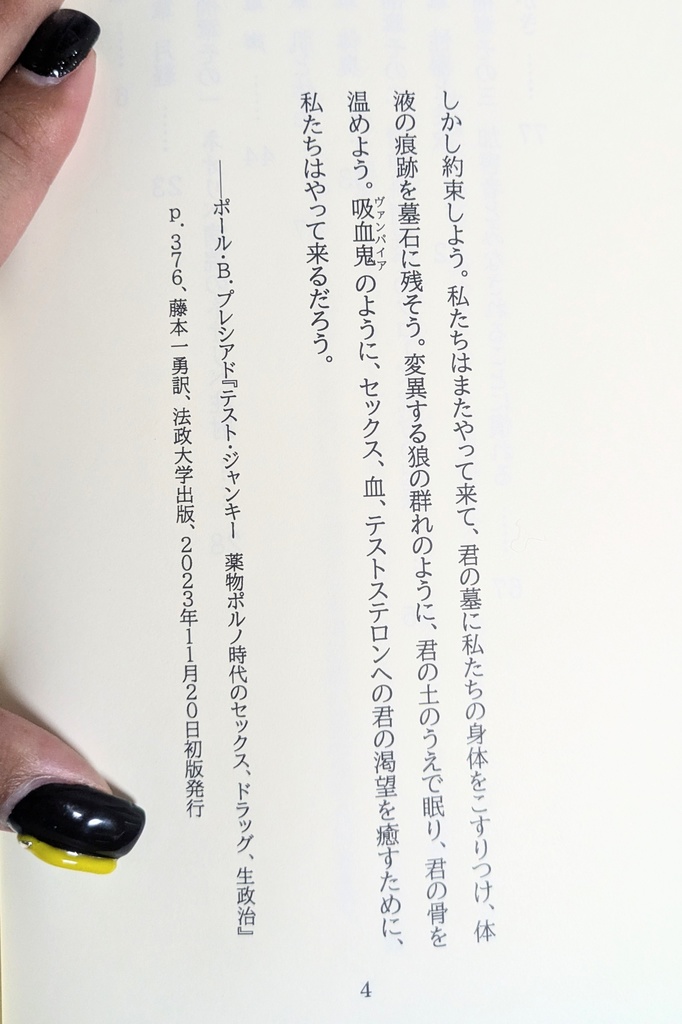 しかし約束しよう。私たちはまたやって来て、君の墓に私たちの身体をこすりつけ、体
液の痕跡を墓石に残そう。変異する狼の群れのように、君の土のうえで眠り、君の骨を
温めよう。吸血鬼のように、セックス、血、テストステロンへの君の渇望を癒すために、
ヴァンパイア
私たちはやって来るだろう。
――ポール・B.プレシアド『テスト・ジャンキー 薬物ポルノ時代のセックス、ドラッグ、生政治』
p.376、藤本一勇訳、法政大学出版、2023年11月20日初版発行
4